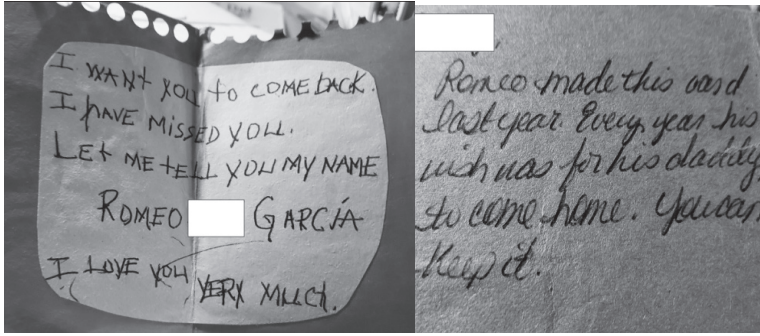 I WANT YOU to COME BACK.
I HAVE MISSED YOU.
LET ME tELL YOU MY NAME
ROMEO GARCÍA
I LOVE YOU VERY MUCH.
Romeo made this card
last year. Every year his
wish was for his daddy
to come home. You can
keep it.